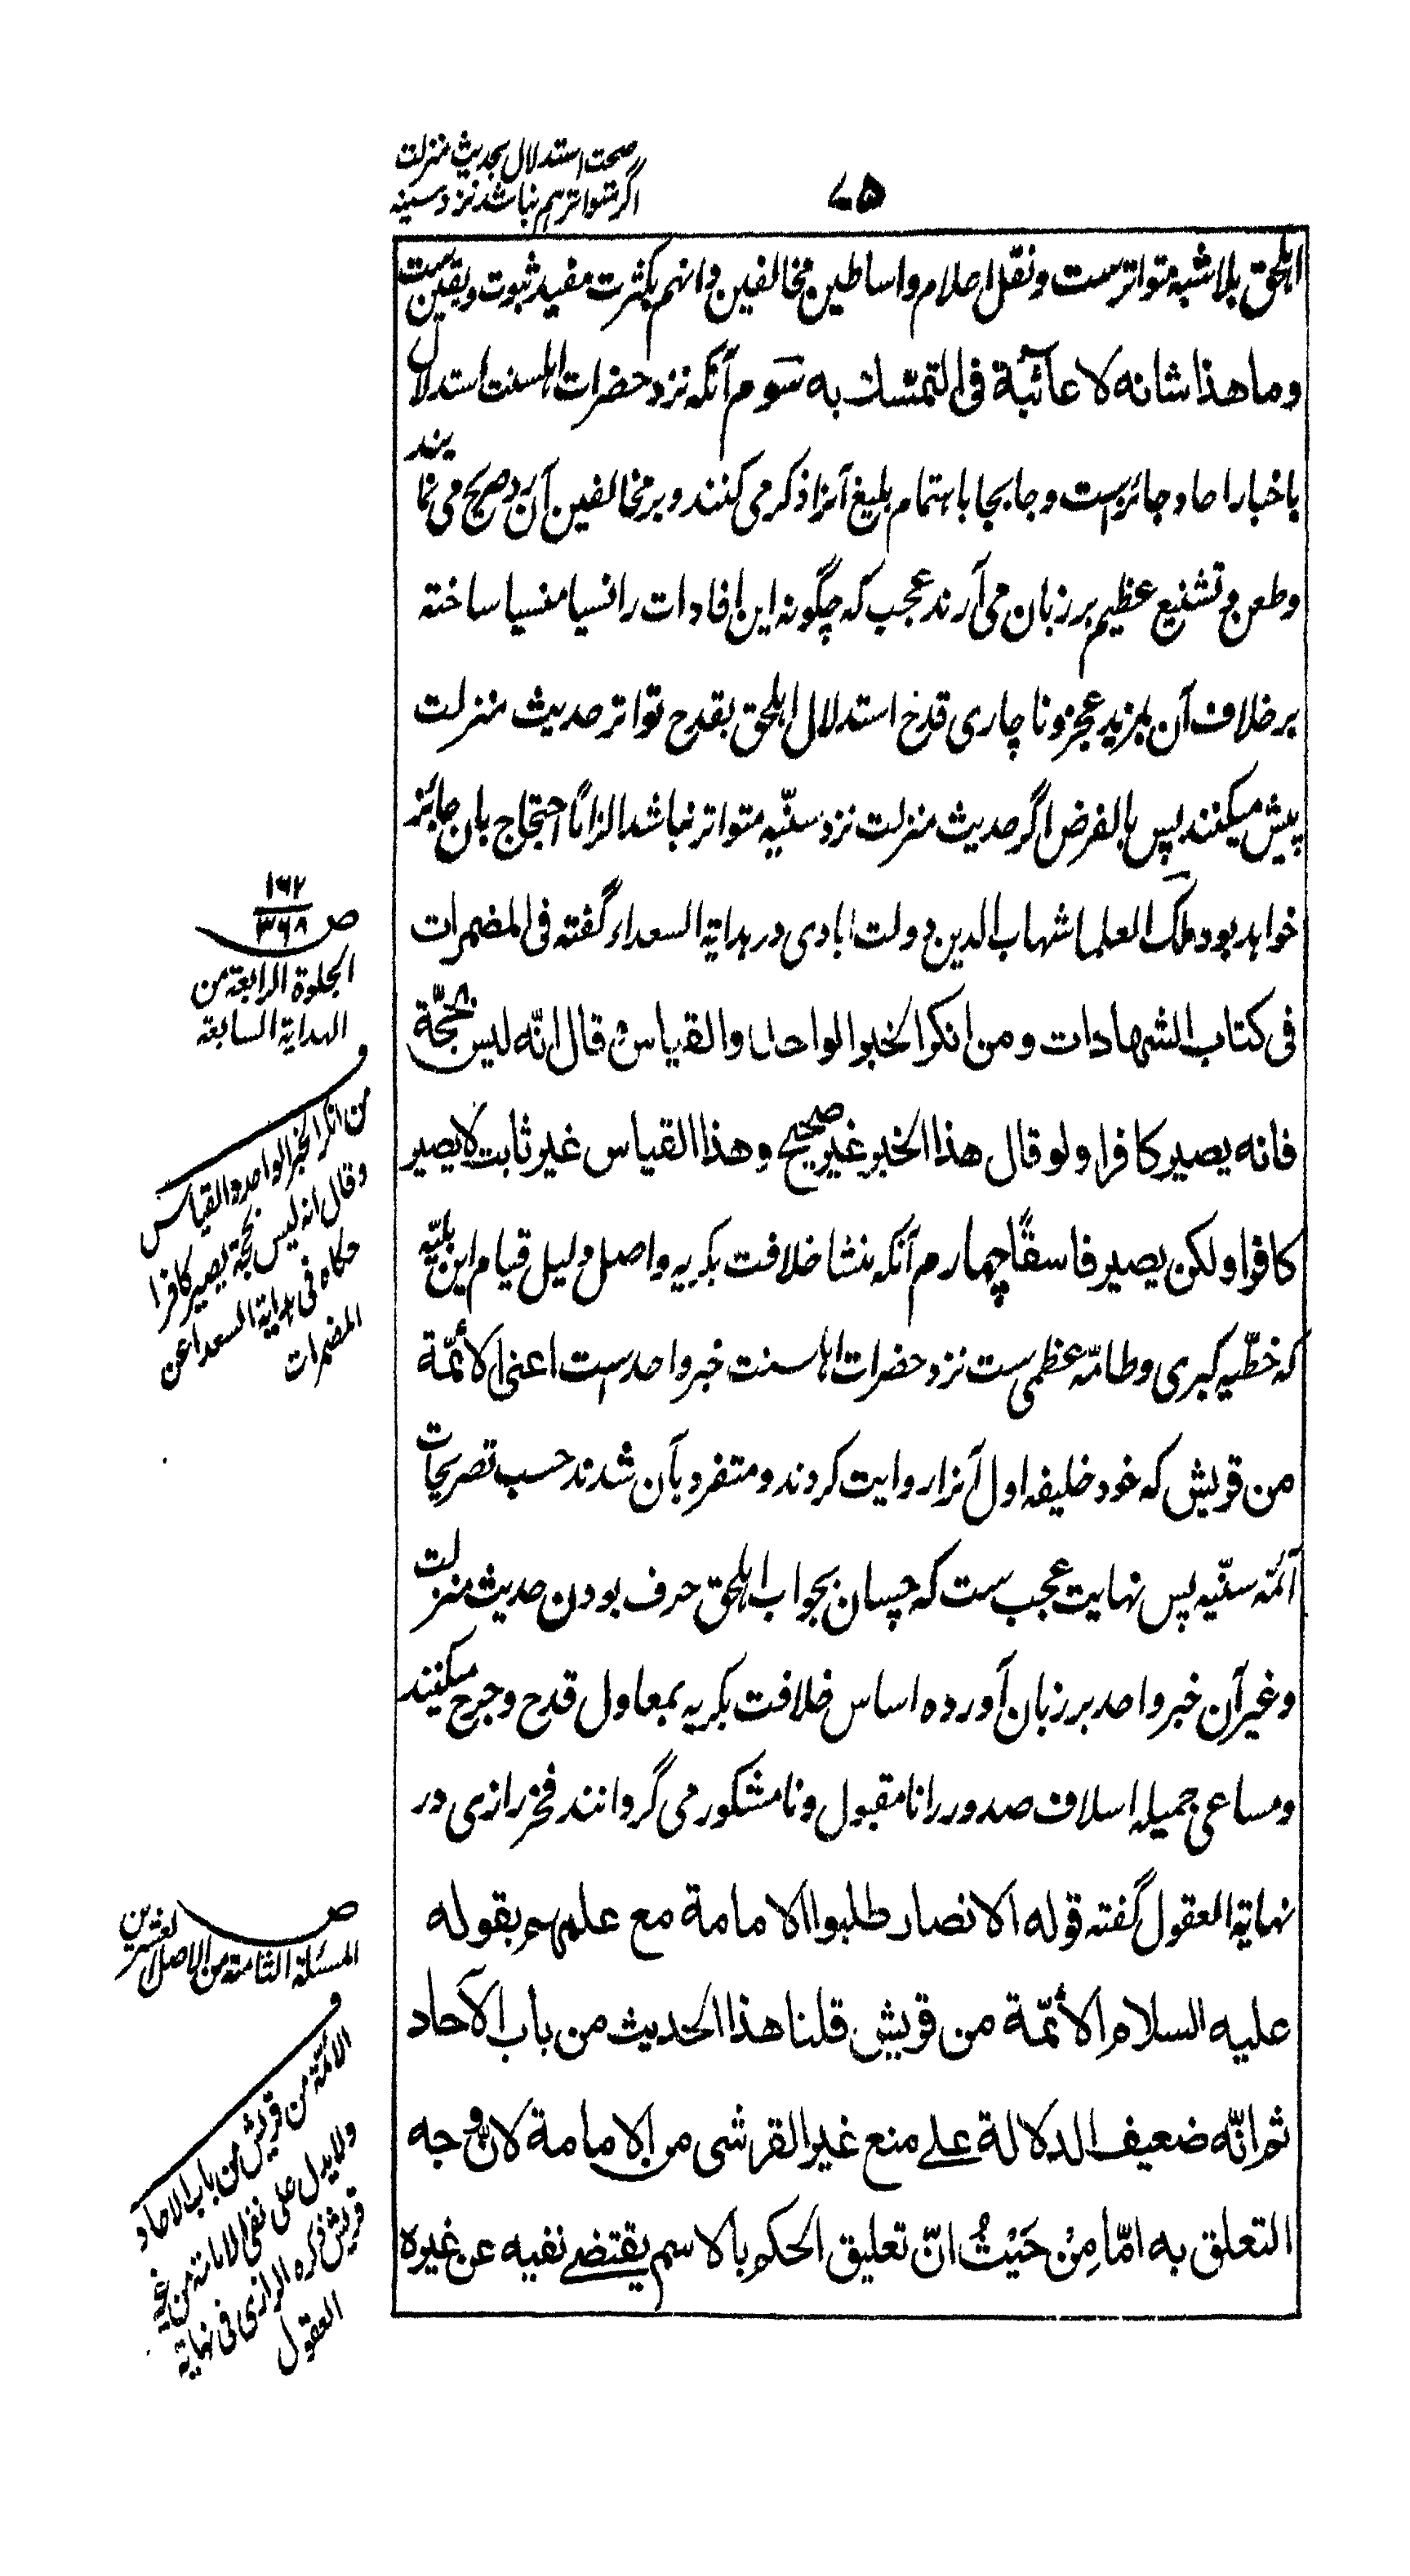 صحت استدلال بحدیث منزلت
اگر متواتر هم نباشد نزد سنیه
۷۵
اهلحق بلا شبه متواترست و نقل اعلام و اساطین مخالفین و انهم بکثرت مفید ثبوت و یقین ست
وما هذا شانه لا عائبة فی التمسّك به سوم آنکه نزد حضرات اهلسنت استدلال
باخبار احاد جائزست و جابجا باهتمام بلیغ آنرا ذکر می کنند و بر مخالفین آن رد صریح می نمایند
و طعن و تشنیع عظیم بر زبان می آرند عجب که چگونه این افادات را نسیا منسیا ساخته
بر خلاف آن بمزید عجز و ناچاری قدح استدلال اهلحق بقدح تواتر حدیث منزلت
پیش میکنند پس بالفرض اگر حدیث منزلت نزد سنّیه متواتر نباشد الزاماً احتجاج بان جائز
خواهد بود ملک العلما شهاب الدین دولت ابادی در هدایة السعداء گفته فی المضمرات
فی کتاب الشهادات ومن انکر الخبر الواحد والقیاس وقال انّه لیس بحجّة
فانه یصیر کافرا ولو قال هذا الخبر غیر صحیح وهذا القیاس غیر ثابت لا یصیر
کافرا ولکن یصیر فاسقًا چهارم آنکه منشا خلافت بکریه و اصل دلیل قیام این بلیّه
که خطّیه کبری و طامّه عظمی ست نزد حضرات اهلسنت خبر واحدست اعنی الأئمّة
من قریش که خود خلیفه اول آنرا روایت کردند و متفرد بآن شدند حسب تصریحات
آئمه سنّیه پس نهایت عجب ست که چسان بجواب اهلحق حرف بودن حدیث منزلت
و غیر آن خبر واحد بر زبان آورده اساس خلافت بکریه بمعاول قدح و جرح میکنند
و مساعی جمیله اسلاف صدور را نامقبول و نامشکور می گردانند فخر رازی در
نهایة العقول گفته قوله الانصار طلبوا الامامة مع علمهم بقوله
علیه السلام الأئمّة من قریش قلنا هذا الحدیث من باب الآحاد
ثم انّه ضعیف الدلالة علی منع غیر القرشی من الامامة لانّ وجه
التعلق به امّا مِنْ حَیْثُ انّ تعلیق الحکم بالاسم یقتضی نفیه عن غیره
ص ۱۶۲
۳۶۸
الجلوة الرابعة من
الهدایة السابعة
من انکر الخبر الواحد والقیاس
وقال انه لیس بحجة یصیر کافرا
حکاه فی هدایة السعداء عن
المضمرات
ص
المسئلة الثامنة من الاصل العشرین
الائمّة من قریش من باب الاحاد
ولا یدل علی نفی الامامة من غیر
قریش ذکره الرازی فی نهایة
العقول